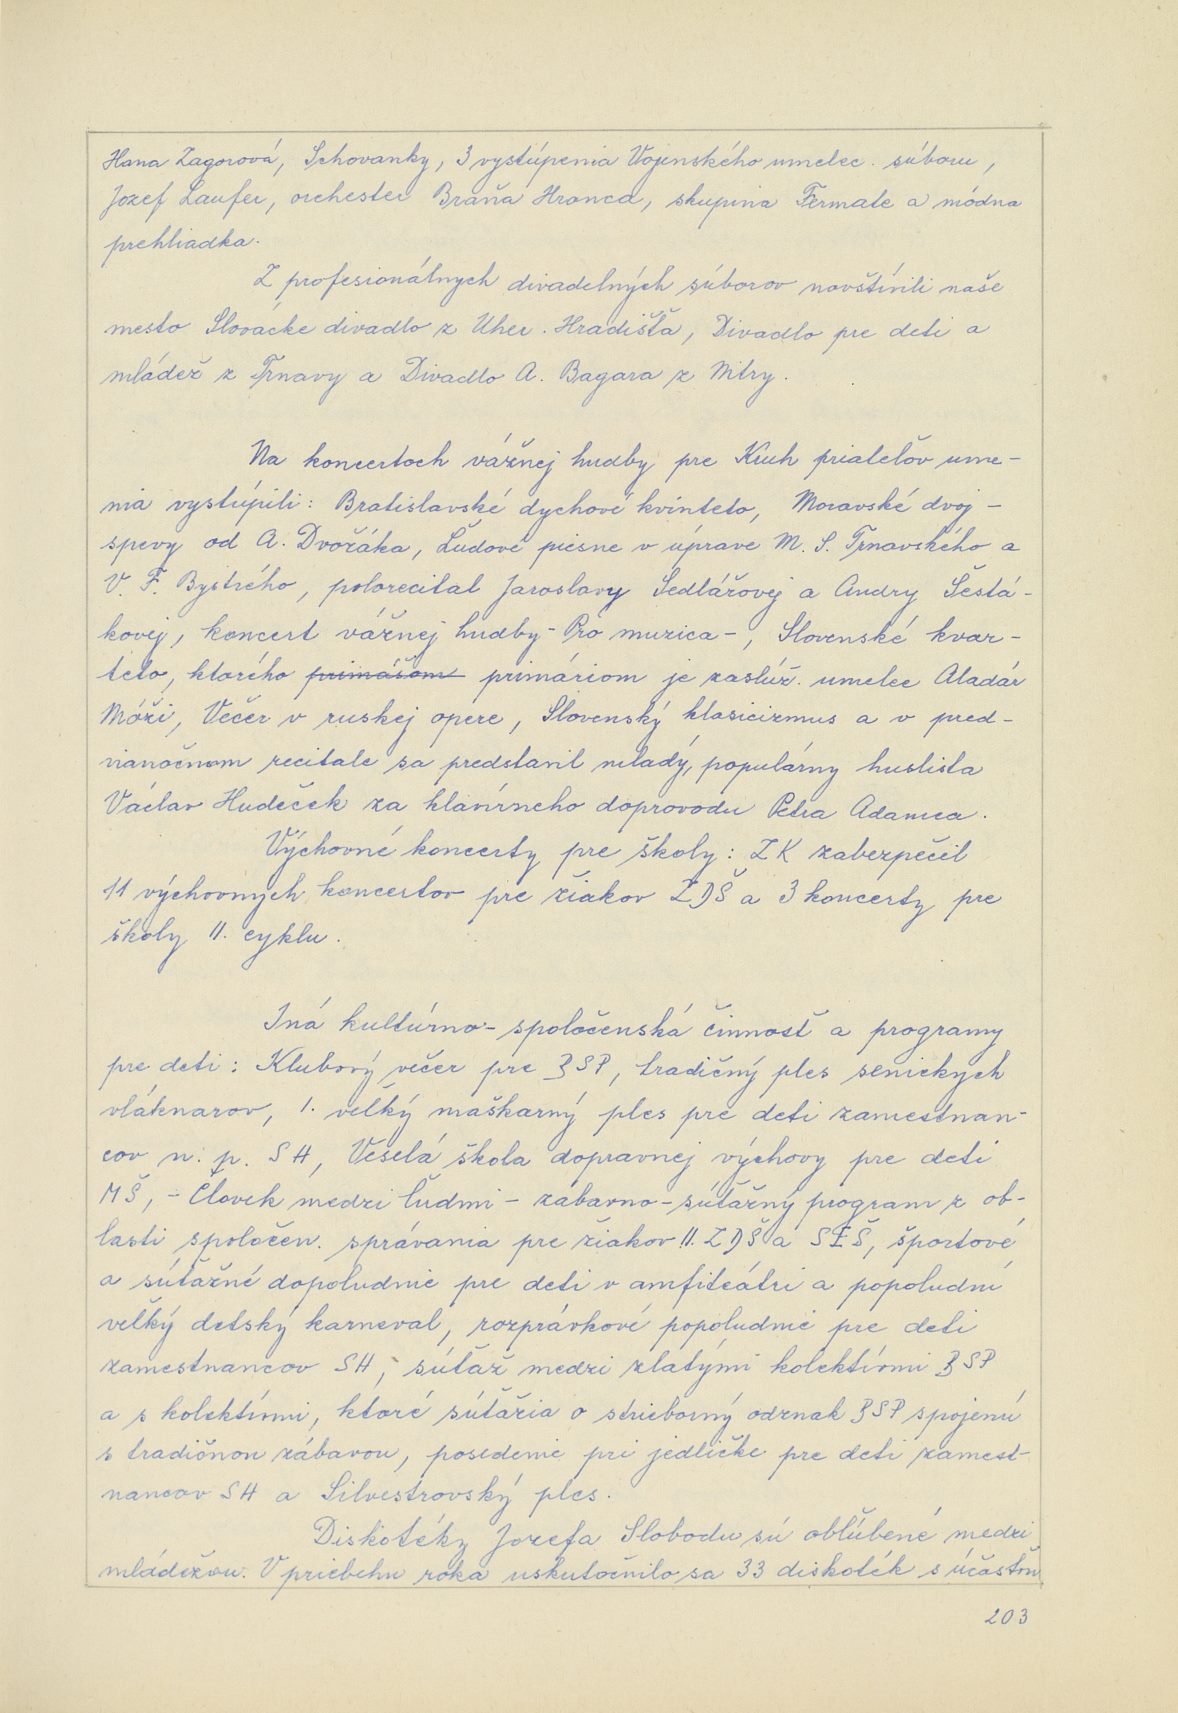 Hana Zagorová, Schovanky, 3 vystúpenia Vojenského umelec. súboru,
Jozef Laufer, orchester Braňa Hronca, skupina Fermate a módna
prehliadka.
Z profesionálnych divadelných súborov navštívili naše
mesto Slovácke divadlo z Uher. Hradišťa, Divadlo pre deti a
mládež z Trnavy a Divadlo A. Bagara z Nitry.
Na koncertoch vážnej hudby pre Kruh priateľov ume-
nia vystúpili: Bratislavské dychové kvinteto, Moravské dvoj-
spevy od A. Dvořáka, Ľudové piesne v úprave M. S. Trnavského a
V. F. Bystrého, polorecital Jaroslavy Sedlářovej a Andry Šestá-
kovej, koncert vážnej hudby - Pro muzica -, Slovenské kvar-
teto, ktorého primášom primáriom je zaslúž. umelec Aladár
Móži, Večer v ruskej opere, Slovenský klasicizmus a v pred-
vianočnom recitale sa predstavil mladý, populárny huslista
Václav Hudeček za klavírneho doprovodu Petra Adamca.
Výchovné koncerty pre školy: ZK zabezpečil
11 výchovných koncertov pre žiakov ZDŠ a 3 koncerty pre
školy II. cyklu.
Iná kultúrno-spoločenská činnosť a programy
pre deti: Klubový večer pre BSP, tradičný ples senických
vláknarov, 1. veľký maškarný ples pre deti zamestnan-
cov n. p. SH, Veselá škola dopravnej výchovy pre deti
MŠ, - Človek medzi ľuďmi - zábavno-súťažný program z ob-
lasti spoločen. správania pre žiakov II. ZDŠ a SEŠ, športové
a súťažné dopoludnie pre deti v amfiteátri a popoludní
veľký detský karneval, rozprávkové popoludnie pre deti
zamestnancov SH, súťaž medzi zlatými kolektívmi BSP
a s kolektívmi, ktoré súťažia o strieborný odznak BSP spojenú
s tradičnou zábavou, posedenie pri jedličke pre deti zamest-
nancov SH a Silvestrovský ples.
Diskotéky Jozefa Slobodu sú obľúbené medzi
mládežou. V priebehu roka uskutočnilo sa 33 diskoték s účasťou
203